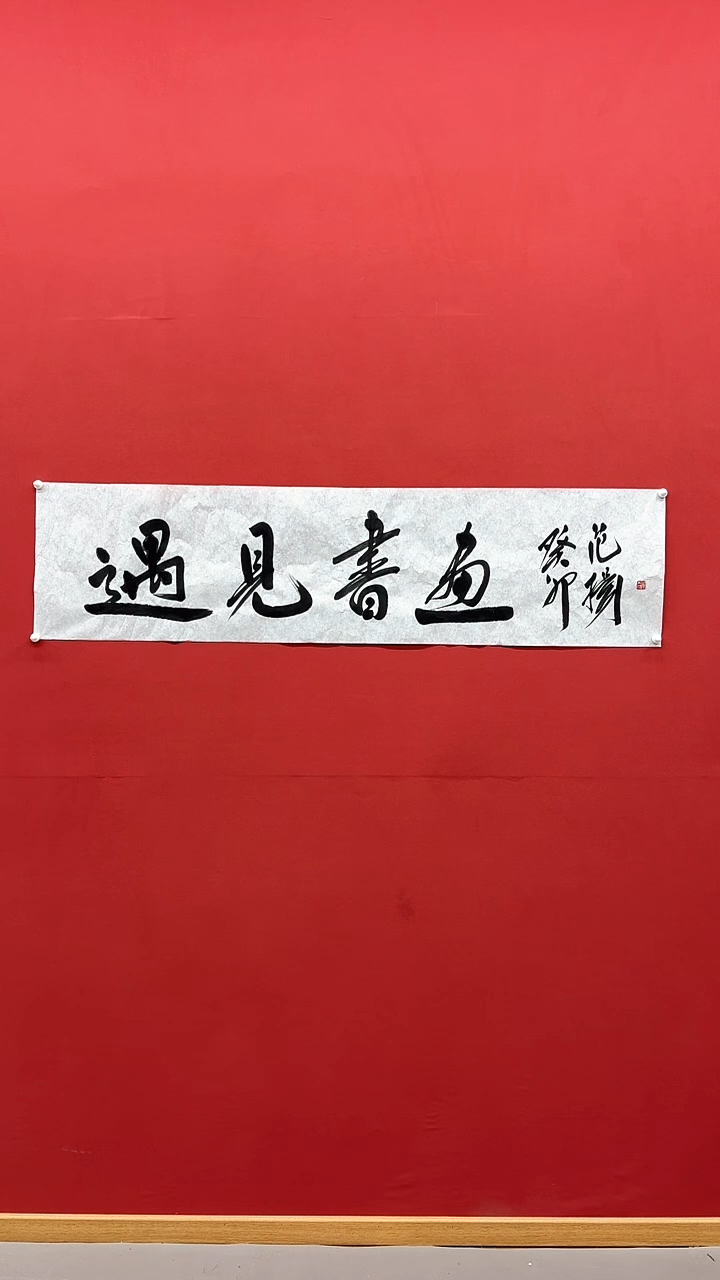 遇見書画
癸卯
范